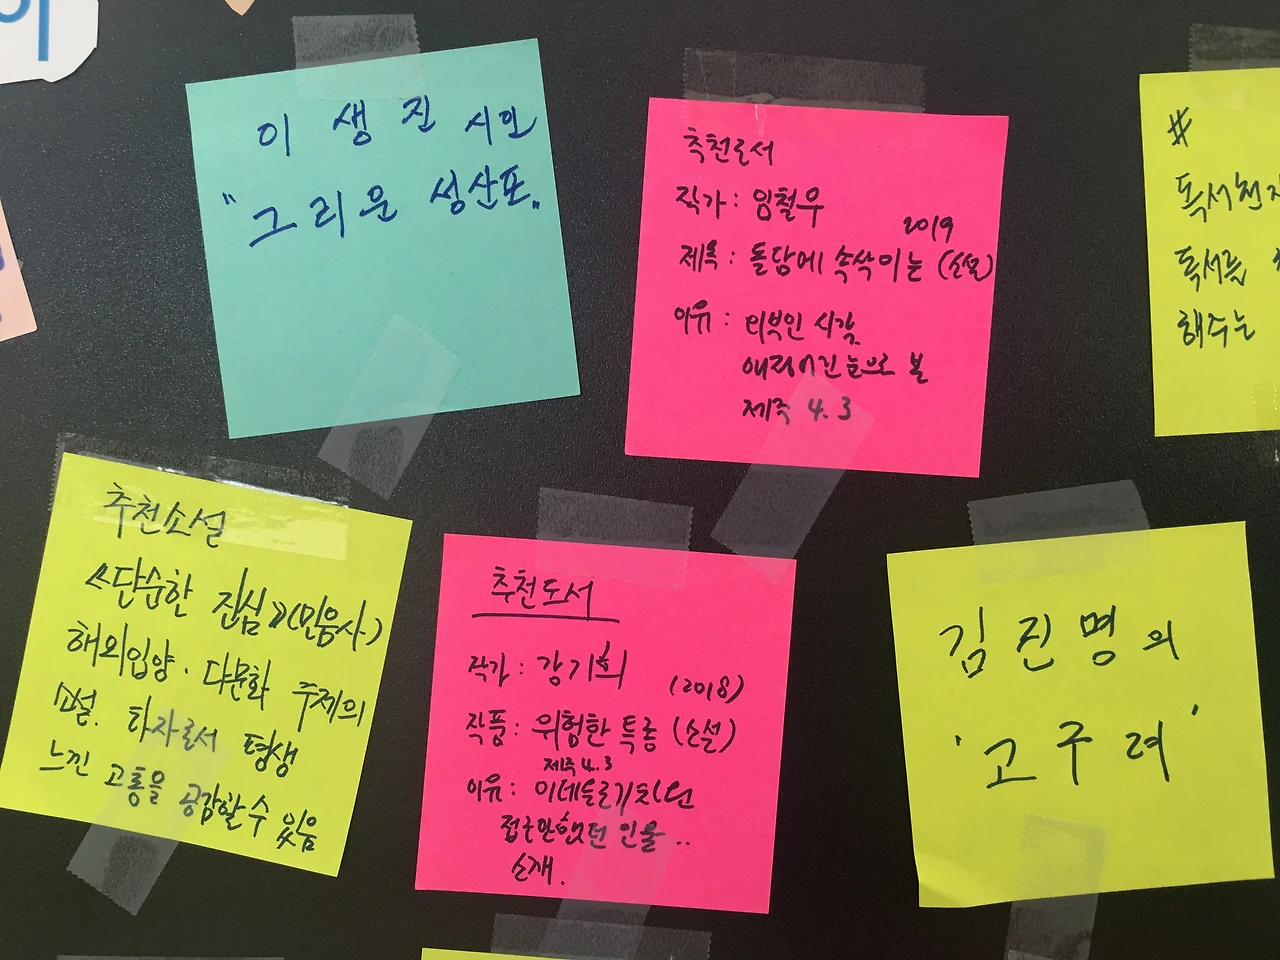 이 생 진 시인
"그리운 성산포"
추천도서
작가 : 임철우
2019
제목 : 돌담에 속삭이는 (소설)
이유 : 외부인 시각
눈으로 본
제주 4.3
#
독서천
독서를
해주는
추천소설
《단순한 진심》(민음사)
해외입양. 다문화 주제의
소설. 타자로서 평생
느낀 고통을 공감할 수 있음
추천도서
작가 : 강기희
(2018)
작품 : 위험한 특종 (소설)
제주 4.3
이유 : 이데올로기
접근안했던 인물..
소재.
김진명의
'고구려'